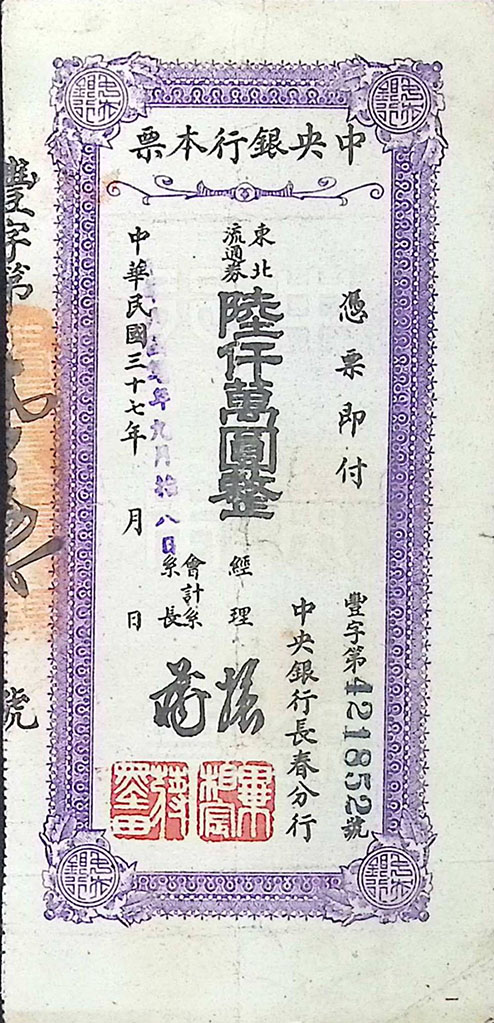 中央銀行本票
憑票即付
豐字第421852號
中央銀行長春分行
東北
流通券
陸仟萬圓整
經理
會計系
系長
中華民國三十七年 月 日
年九月拾八日
豐字第
號